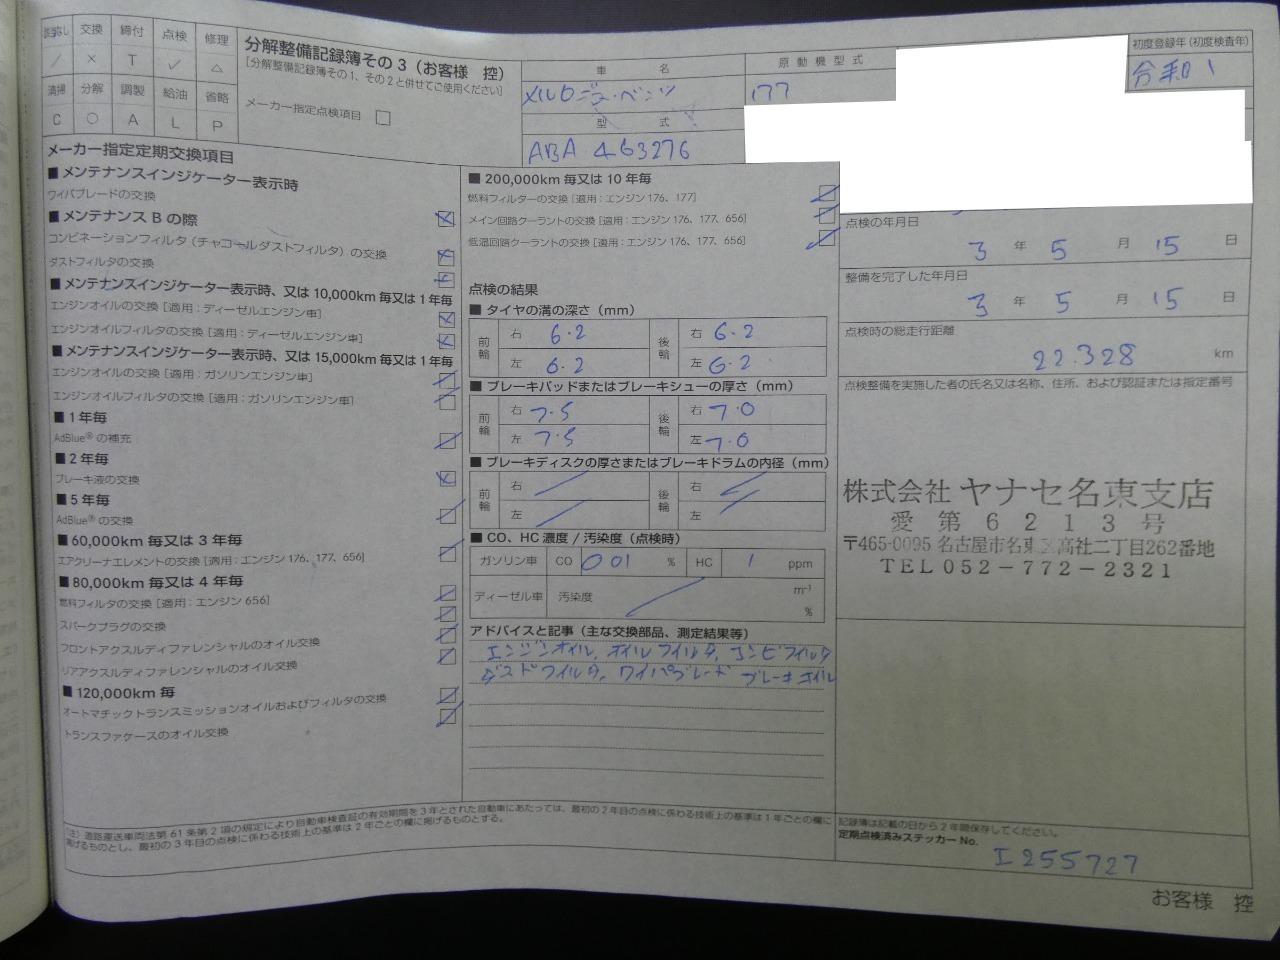 交換 締付 点検 修理
／ × T ✓ △
清掃 分解 調製 給油 省略
C ○ A L P
分解整備記録簿その3(お客様 控)
[分解整備記録簿その1、その2と併せてご使用ください]
メーカー指定点検項目 □
車名
メルセデス・ベンツ
型式
ABA 463276
原動機型式
177
初度登録年(初度検査年)
令和1
メーカー指定定期交換項目
■メンテナンスインジケーター表示時
ワイパブレードの交換
■メンテナンスBの際
コンビネーションフィルタ(チャコールダストフィルタ)の交換
ダストフィルタの交換
■メンテナンスインジケーター表示時、又は10,000km毎又は1年毎
エンジンオイルの交換[適用:ディーゼルエンジン車]
エンジンオイルフィルタの交換[適用:ディーゼルエンジン車]
■メンテナンスインジケーター表示時、又は15,000km毎又は1年毎
エンジンオイルの交換[適用:ガソリンエンジン車]
エンジンオイルフィルタの交換[適用:ガソリンエンジン車]
■1年毎
AdBlue®の補充
■2年毎
ブレーキ液の交換
■5年毎
AdBlue®の交換
■60,000km毎又は3年毎
エアクリーナエレメントの交換[適用:エンジン176、177、656]
■80,000km毎又は4年毎
燃料フィルタの交換[適用:エンジン656]
スパークプラグの交換
フロントアクスルディファレンシャルのオイル交換
リアアクスルディファレンシャルのオイル交換
■120,000km毎
オートマチックトランスミッションオイルおよびフィルタの交換
トランスファケースのオイル交換
■200,000km毎又は10年毎
燃料フィルターの交換[適用:エンジン176、177]
メイン回路クーラントの交換[適用:エンジン176、177、656]
低温回路クーラントの交換[適用:エンジン176、177、656]
点検の結果
■タイヤの溝の深さ(mm)
前輪 右 6.2 後輪 右 6.2
左 6.2 左 6.2
■ブレーキパッドまたはブレーキシューの厚さ(mm)
前輪 右 7.5 後輪 右 7.0
左 7.5 左 7.0
■ブレーキディスクの厚さまたはブレーキドラムの内径(mm)
前輪 右 ／ 後輪 右 ／
左 ／ 左 ／
■CO、HC濃度/汚染度(点検時)
ガソリン車 CO 0 01 % HC 1 ppm
ディーゼル車 汚染度 ／ m⁻¹
%
アドバイスと記事(主な交換部品、測定結果等)
エンジンオイル、オイルフィルタ、コンビフィルタ
ダストフィルタ、ワイパブレード ブレーキオイル
点検の年月日
3年 5月 15日
整備を完了した年月日
3年 5月 15日
点検時の総走行距離
22.328 km
点検整備を実施した者の氏名又は名称、住所、および認証または指定番号
株式会社 ヤナセ名東支店
愛第6213号
〒465-0095 名古屋市名東区高社二丁目262番地
TEL 052-772-2321
(注)道路運送車両法第61条第2項の規定により自動車検査証の有効期間を3年とされた自動車にあたっては、最初の2年目の点検に係わる技術上の基準は1年ごとの欄に
掲げるものとし、最初の3年目の点検に係わる技術上の基準は2年ごとの欄に掲げるものとする。
記録簿は記載の日から2年間保存してください。
定期点検済みステッカーNo.
I255727
お客様 控